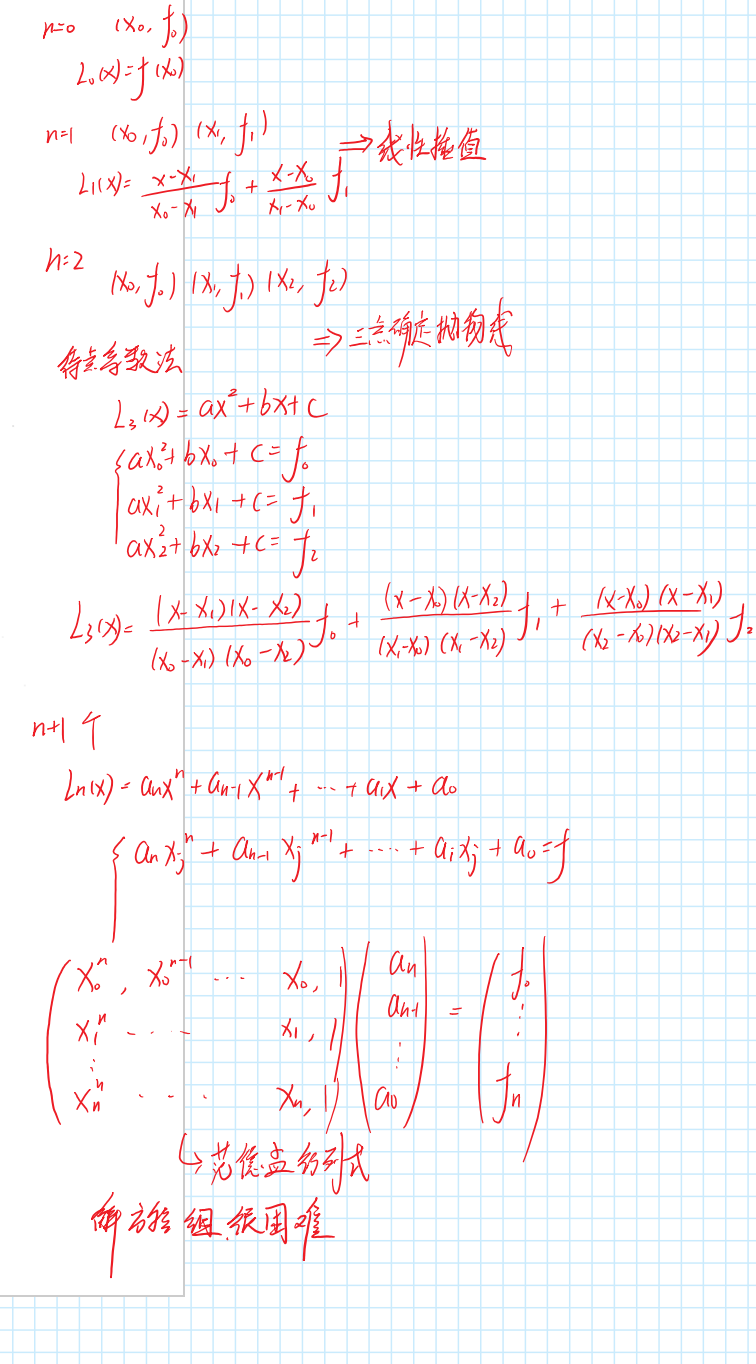 n=0 (x₀, f₀)
L₀(x)=f(x₀)
n=1 (x₀, f₀) (x₁, f₁)
⇒线性插值
L₁(x)= (x-x₁)/(x₀-x₁) f₀ + (x-x₀)/(x₁-x₀) f₁
n=2
(x₀, f₀) (x₁, f₁) (x₂, f₂)
⇒三点确定抛物线
待定系数法
L₃(x)=ax²+bx+c
{ax₀²+bx₀+c=f₀
ax₁²+bx₁+c=f₁
ax₂²+bx₂+c=f₂
L₃(x)= (x-x₁)(x-x₂)/(x₀-x₁)(x₀-x₂) f₀ + (x-x₀)(x-x₂)/(x₁-x₀)(x₁-x₂) f₁ + (x-x₀)(x-x₁)/(x₂-x₀)(x₂-x₁) f₂
n+1 个
Lₙ(x)=aₙxⁿ+aₙ₋₁xⁿ⁻¹+…+a₁x+a₀
{aₙxⱼⁿ+aₙ₋₁xⱼⁿ⁻¹+……+a₁xⱼ+a₀=f
(x₀ⁿ, x₀ⁿ⁻¹ … x₀, 1) (aₙ) (f₀)
x₁ⁿ …… x₁, 1 aₙ₋₁ = ⋮
⋮ ⋮
xₙⁿ …… xₙ, 1 a₀ fₙ
↳范德孟行列式
解方程组很困难